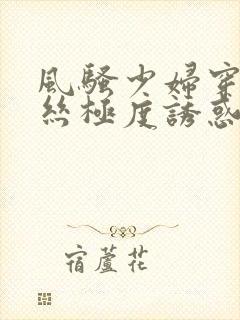 風騷少婦穿
絲極度誘惑
宿蘆花